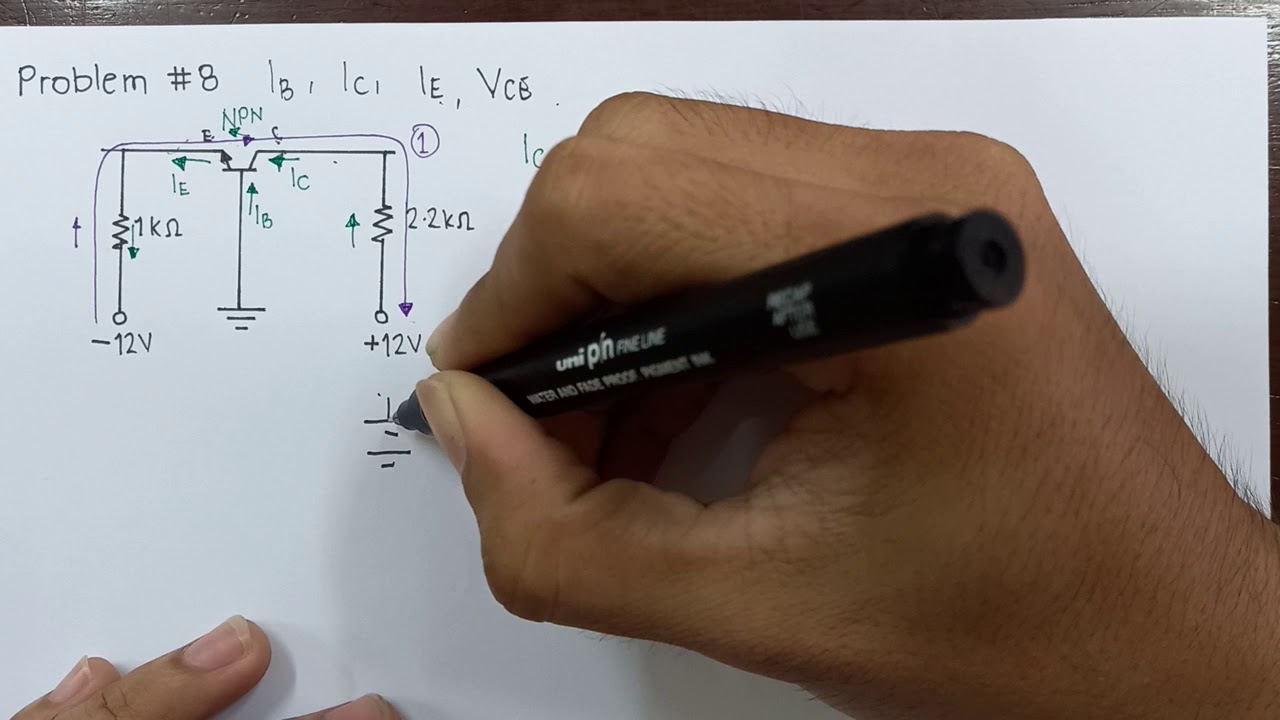 Problem #8 IB, IC, IE, VCE
NPN
E C
1
IE IC
IC
IB
1kΩ 2.2kΩ
-12V +12V
uni pin FINE LINE
WATER AND FADE PROOF, PIGMENT INK